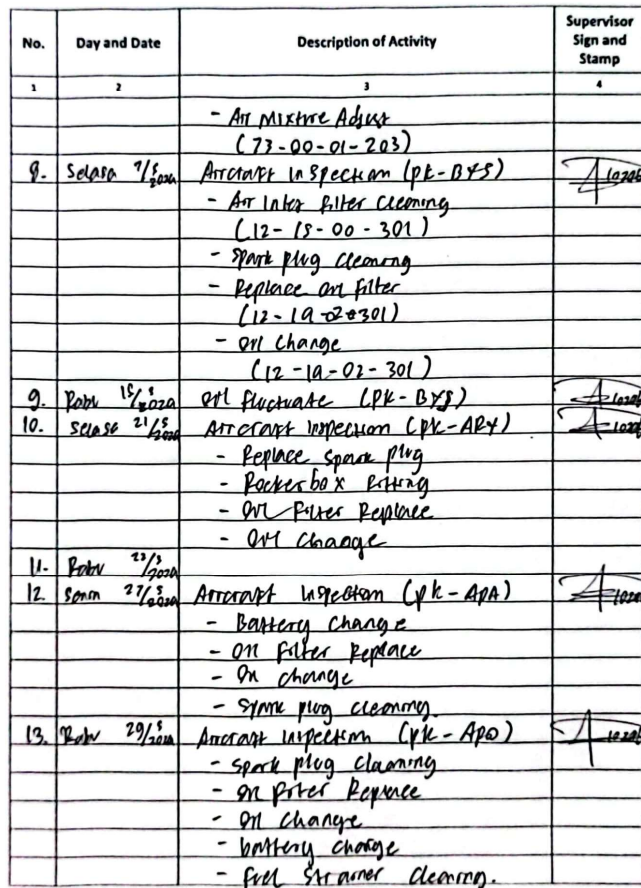 No. Day and Date Description of Activity Supervisor Sign and Stamp
1 2 3 4
- Air Mixture Adjust
(73-00-01-203)
8. Selasa 7/5 2024 Aircraft Inspection (PK-BYS)
- Air Inter Filter Cleaning
(12-15-00-301)
- Spark plug Cleaning
- Replace Oil Filter
(12-19-02-301)
- Oil Change
(12-19-02-301)
9. Rabu 15/5 2024 Oil Fluctuate (PK-BYS)
10. Selasa 21/5 2024 Aircraft Inspection (PK-ARY)
- Replace Spark plug
- Rocker box
- Oil Filter Replace
- Oil Change
11. Rabu
12. Senin 27/5 2024 Aircraft Inspection (PK-APA)
- Battery Change
- Oil Filter Replace
- Oil Change
- Spark plug cleaning.
13. Rabu 29/5 2024 Aircraft Inspection (PK-APO)
- Spark plug cleaning
- Oil Filter Replace
- Oil Change
- battery change
- Fuel Strainer Cleaning.